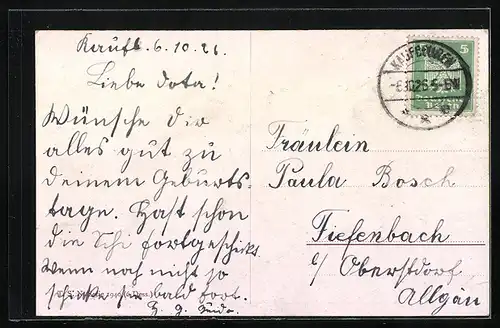 Kaufb. 6.10.26.
Liebe Dota!
Wünsche Dir
alles gut zu
deinem Geburts-
tage. Hast schon
die Schi fortgeschickt
Wenn noch nicht so
schick sie bald fort.
KAUFBEUREN
-6.10.26.5-6N
5
Fräulein
Paula Bosch
Tiefenbach
b/ Oberstdorf
Allgäu